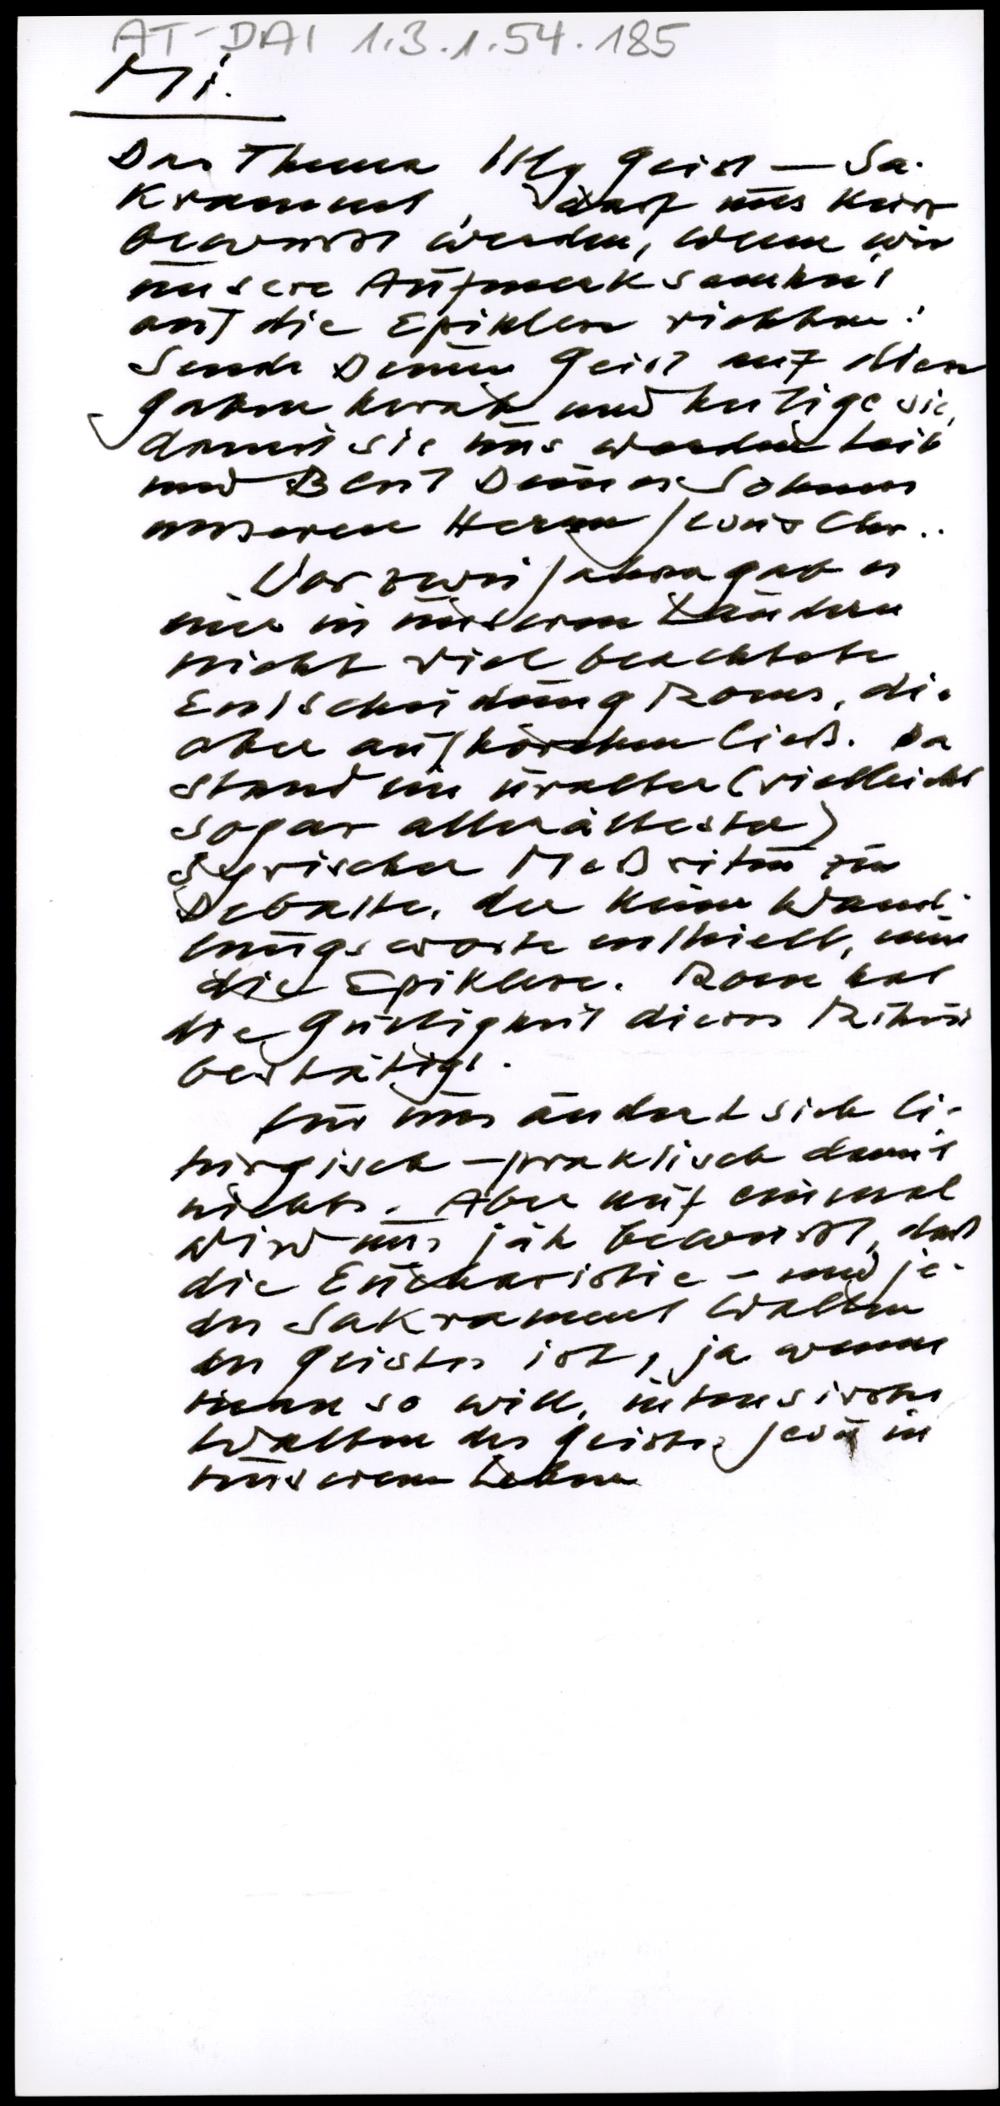 AT-DAI 1.3.1.54.185
Mi.
Das Thema Hlg Geist – Sa-
krament, darf uns kurz
bewusst werden, wenn wir
unsere Aufmerksamkeit
auf die Epiklese richten:
Sende Deinen Geist auf diese
Gaben herab und heilige sie,
damit sie uns werden Leib
und Blut Deines Sohnes
unseren Herrn Jesus Chr..
Vor zwei Jahren gab es
eine in unseren Ländern
nicht viel beachtete
Entscheidung Roms, die
aber aufhorchen ließ. Da
stand ein uralter (vielleicht
sogar allerältester)
syrischer Meßritus zur
Debatte, der keine Wand-
lungsworte enthielt, nur
die Epiklese. Rom hat
die Gültigkeit dieses Ritus
bestätigt.
Für uns ändert sich li-
turgisch-praktisch damit
nichts. Aber auf einmal
wird uns jäh bewusst, daß
die Eucharistie – und je-
des Sakrament Walten
des Geistes ist, ja wenn
man so will, intensivstes
Walten des Geistes Jesu in
unserem Leben